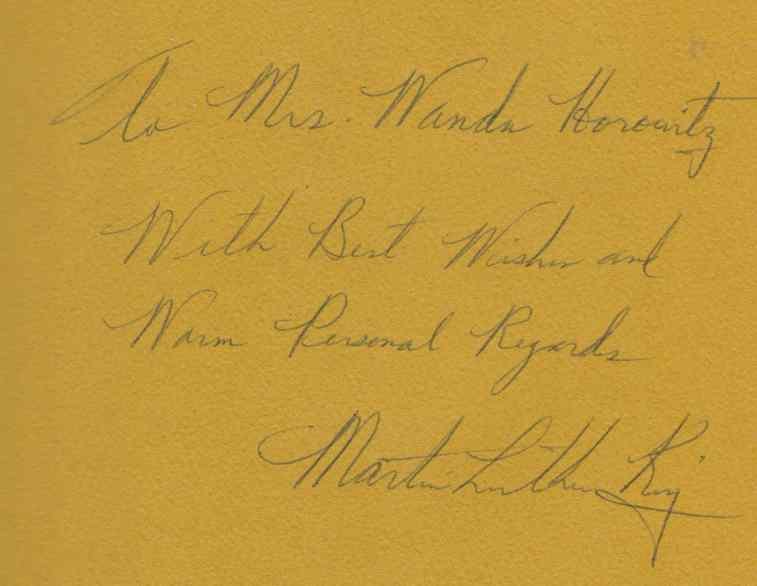 To Mrs. Wanda Horowitz
With Best Wishes and
Warm Personal Regards
Martin Luther King